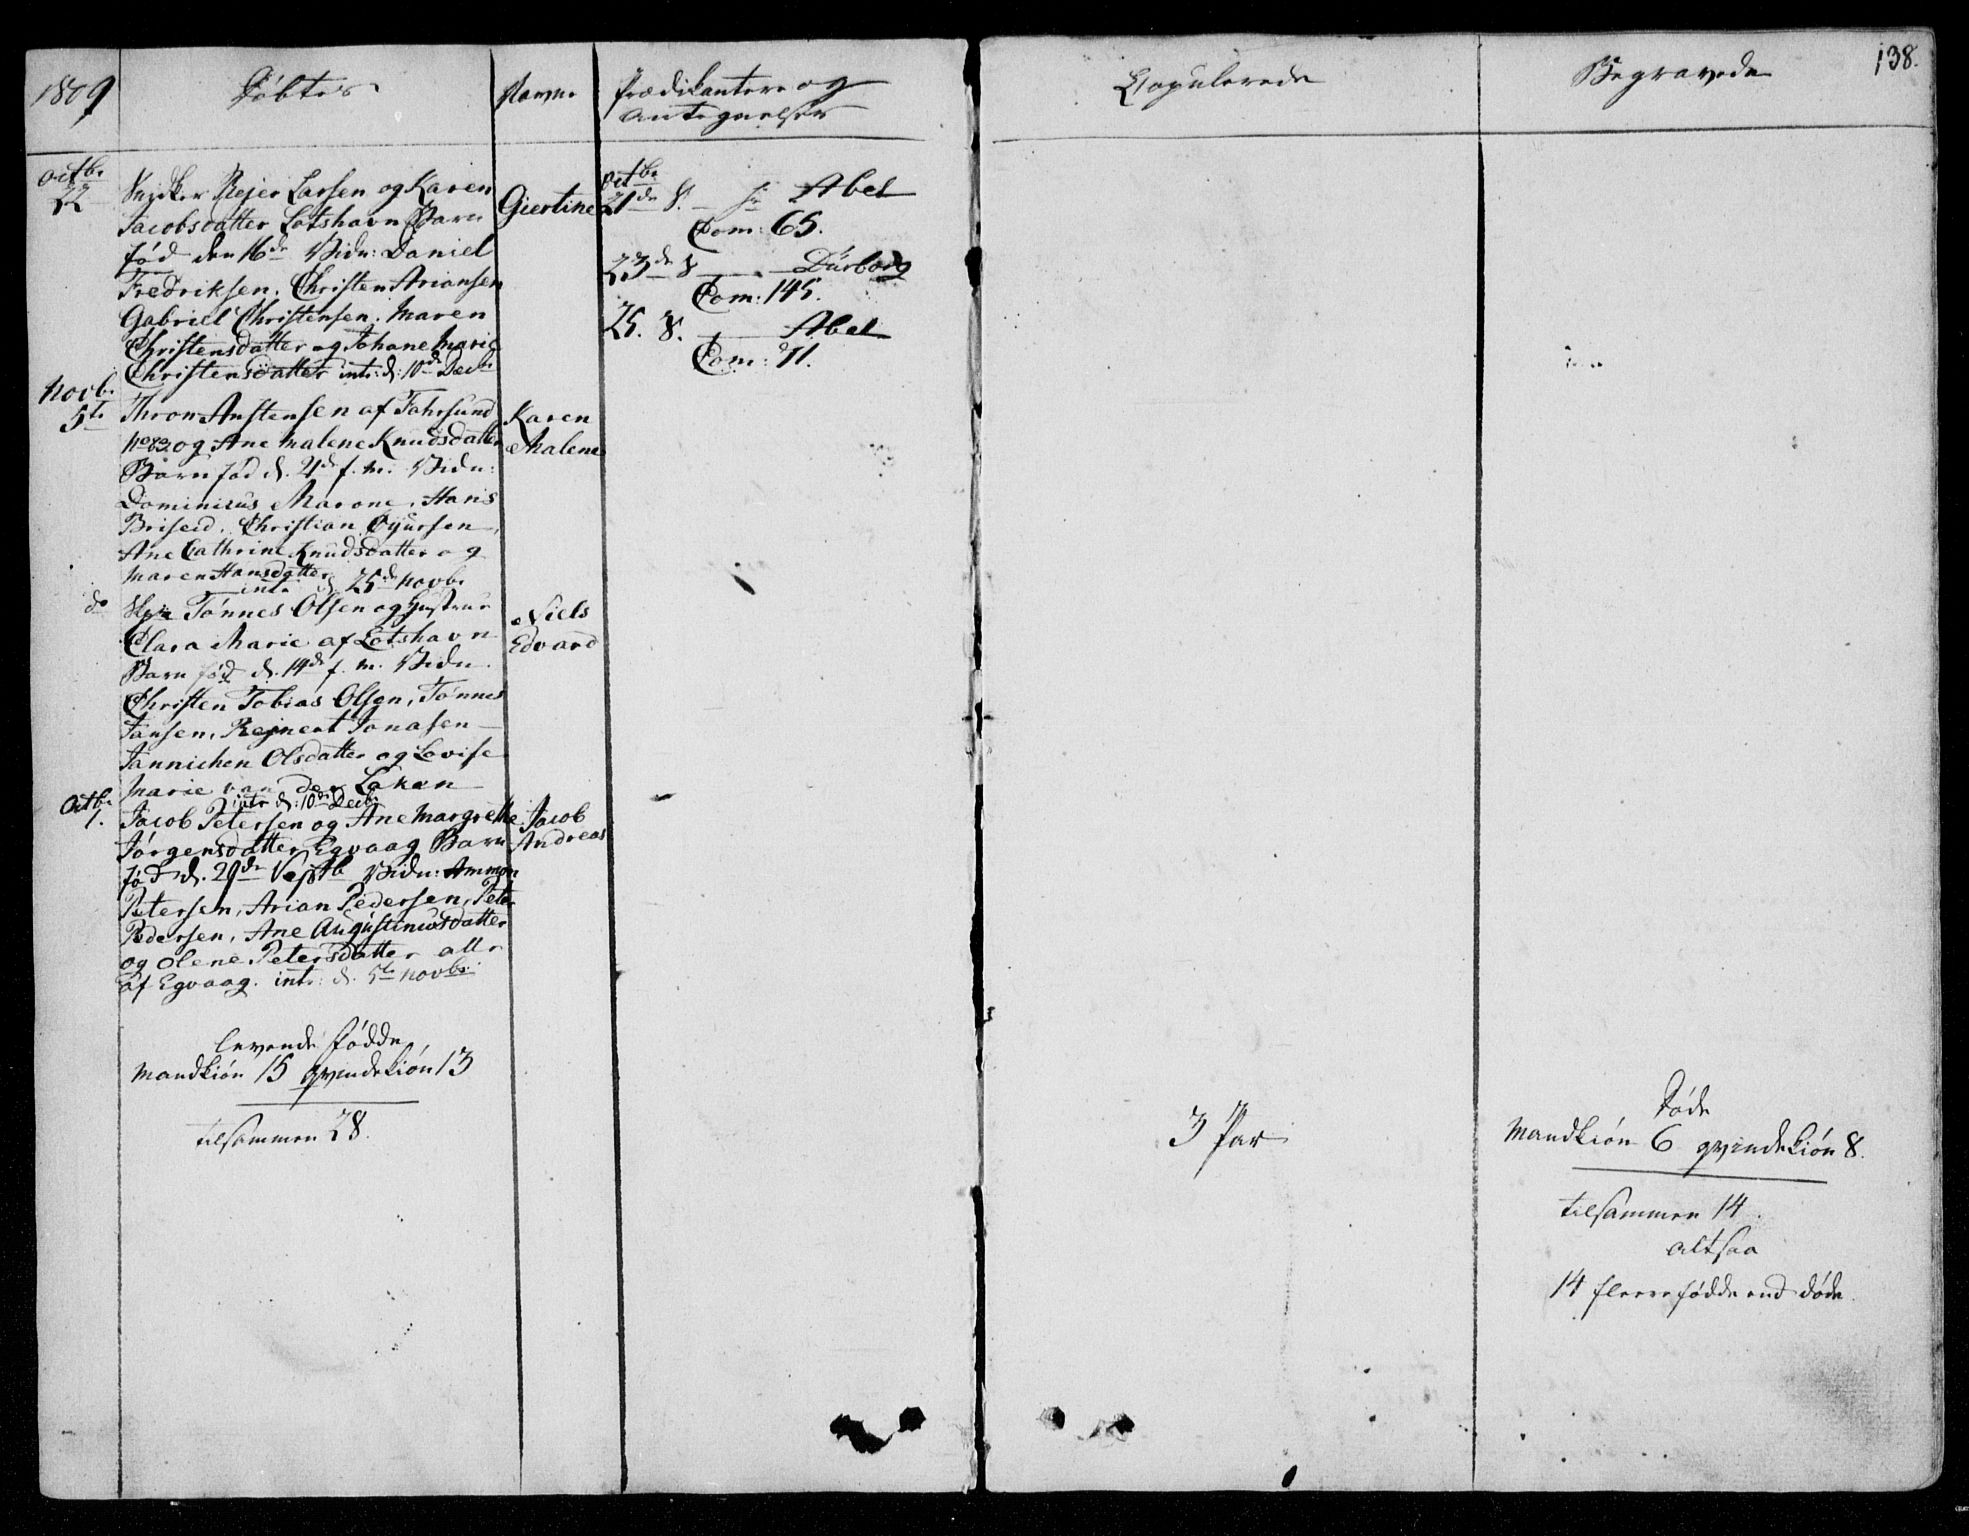 1809
Döbte
Navne
Prædikantere og
Antegnelser
Copulerede
Begravede
138.
Octbr
22
Snidker Rejer Larsen og Karen
Jacobsdatter Lotshavn Barn
fød den 16de Vidn: Daniel
Fredriksen, Christen Ariansen
Gabriel Christensen, Maren
Christensdatter og Johane Marie
Christensdatter intr: d: 10de Decbr
Giertine
Octbr
21de S. Hr Abel
Com: 65.
23de S Dürborg
Com: 145.
25. S. Abel
Com: 71.
Novbr
5te
Thron Anstensen af Fahrsund
No 83 og Ane Malene Knudsdatter
Barn fød d. 21de f. m. Vidn:
Dominicus Marone, Hans
Briseid, Christian Sjursen,
Ane Cathrine Knudsdatter og
Maren Hansdatter
intr d 25de Novbr
Karen
Malene
do
Tönnes Olsen og Hustrue
Clara Marie af Lotshavn
Barn fød d. 14de f. m. Vidn.
Christen Tobias Olsen, Tönnes
Jansen, Rejnert Jonasen
Jannichen Olsdatter og Lovise
Marie van der Laken
intr d: 10de Decbr
Niels
Edvard
Octbr
1.
Jacob Petersen og Ane Margrethe
Jörgensdatter Egvaag Barn
fød d. 29de Septb Vidn: Ammon
Petersen, Arian Pedersen, Peter
Pedersen, Ane Augustinusdatter
og Olene Petersdatter alle
af Egvaag. intr: d. 5te Novbr.
Jacob
Andreas
levende födde
Mandkiön 15 qvindekiön 13
tilsammen 28.
3 Par
Döde
Mandkiön 6 qvindekiön 8.
tilsammen 14.
altsaa
14 fleere födde end döde.